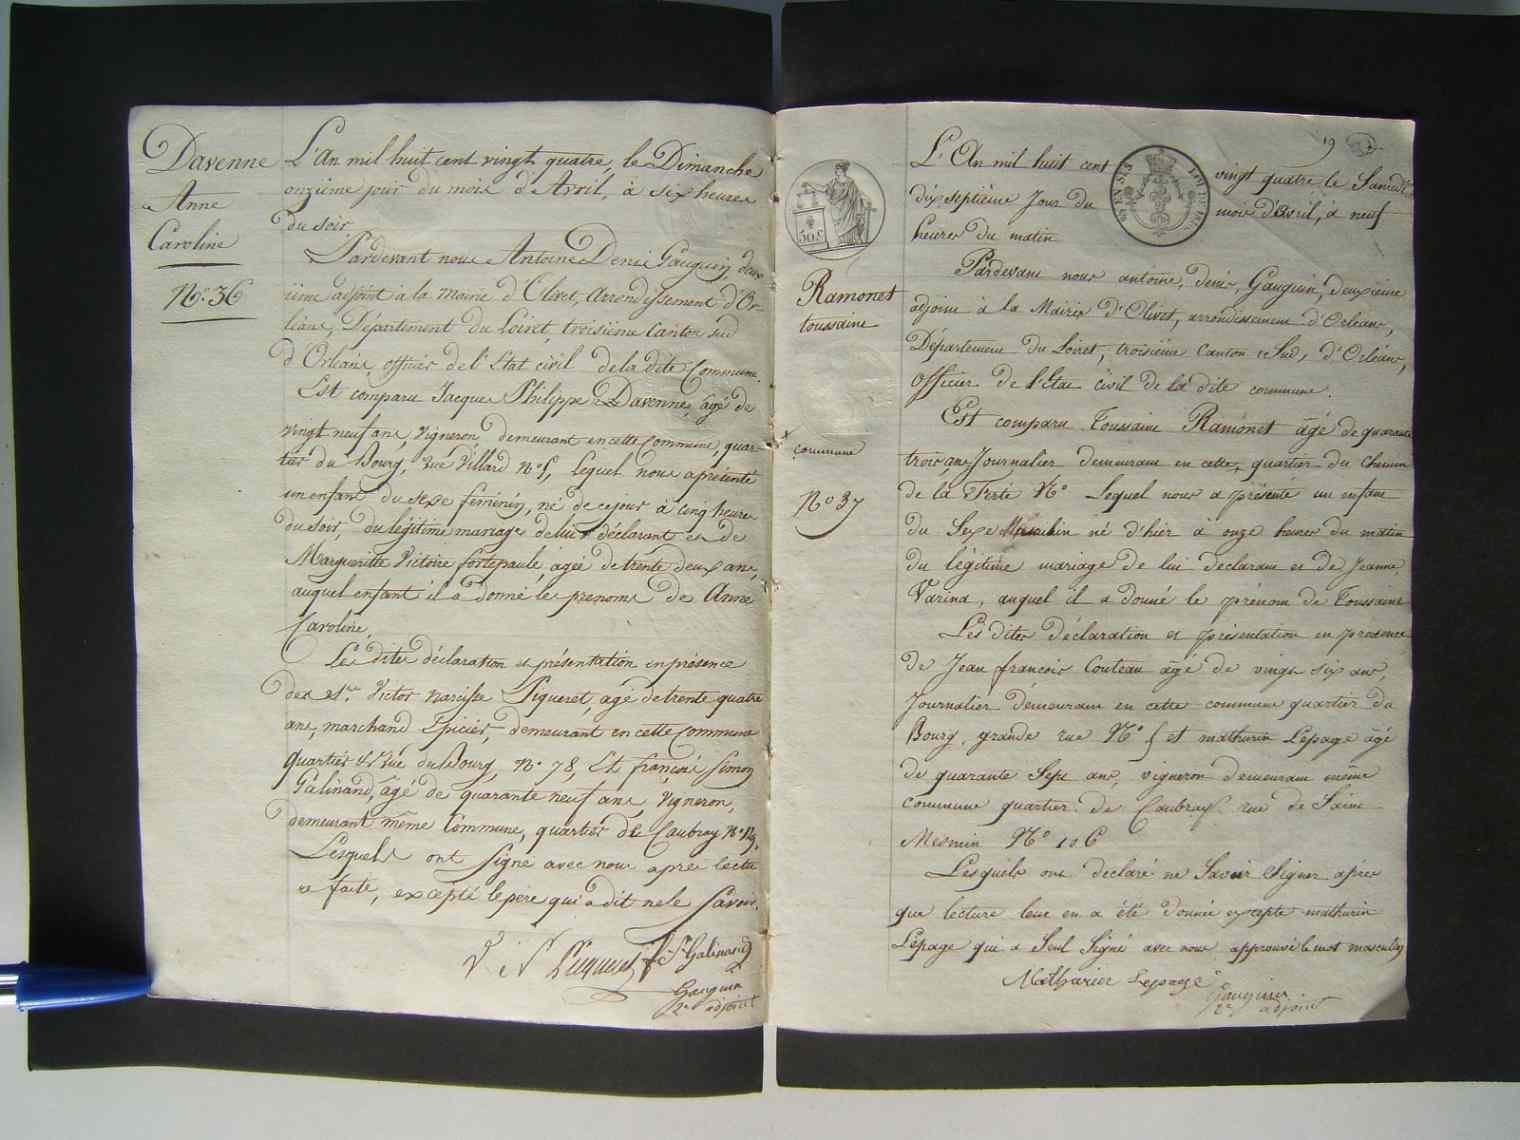 Davenne
Anne
Caroline
N.º 36
L'An mil huit cent vingt quatre, le Dimanche
onzième jour du mois d'Avril, à six heures
du soir
Pardevant nous Antoine Denis Gauguin, deux
ième adjoint à la Mairie d'Olivet, arrondissement d'Or-
léans, Département du Loiret, troisième Canton sud
d'Orléans, officier de l'Etat civil de la dite Commune.
Est comparu Jacques Philippe Davenne, âgé de
vingt neuf ans, Vigneron, demeurant en cette Commune, quar-
tier du Bourg, rue Villard Nº 5, lequel nous a présenté
un enfant du sexe féminin, né de ce jour à cinq heures
du soir, du légitime mariage de lui déclarant et de
Margueritte Victoire Fortepaule, agée de trente deux ans,
auquel enfant il a donné les prenoms de Anne
Caroline.
Les dites déclaration et présentation en présence
des Srs Victor Narcisse Piqueret, agé de trente quatre
ans, marchand Epicier, demeurant en cette Commune
quartier & rue du Bourg, Nº 78, Et françois Simon
Galinand, âgé de quarante neuf ans, Vigneron,
demeurant même Commune, quartier de Caubray
Lesquels ont signé avec nous après lectu
re faite, excepté le père qui a dit ne le savoir.
V. N. Piqueret f. S. Galinand
Gauguin
2e adjoint
19
50 c
Ramonet
toussaint
commune
Nº 37
L'An mil huit cent vingt quatre, le Samedi
dix septième Jour du mois d'Avril, à neuf
heures du matin
Pardevant nous antoine, denis, Gauguin, deuxième
adjoint à la Mairie d'Olivet, arrondissement d'Orléans,
Département du Loiret, troisième Canton Sud, d'Orléans,
officier de l'Etat Civil de la dite commune.
Est comparu Toussaint Ramonet âgé de quarante
trois ans Journalier demeurant en cette, quartier du Chemin
de la Ferté Nº Lequel nous a présenté un enfant
du Sexe Masculin né d'hier à onze heures du matin
du légitime mariage de lui declarant et de Jeanne
Varina, auquel il a donné le prénom de Toussaint
Les dites déclaration et présentation en presence
de Jean françois Couteau âgé de vingt six ans,
Journalier demeurant en cette commune quartier du
Bourg, grande rue Nº 5 et mathurin Lepage âgé
de quarante Sept ans, vigneron demeurant même
commune quartier de Caubray rue de Saint
Mesmin Nº 106
Lesquels ont declaré ne Savoir Signer après
que lecture leur en a été donnée excepté mathurin
Lepage qui a Seul Signé avec nous approuvé le mot masculin
Matharier Lepage
Gauguin
2e adjoint